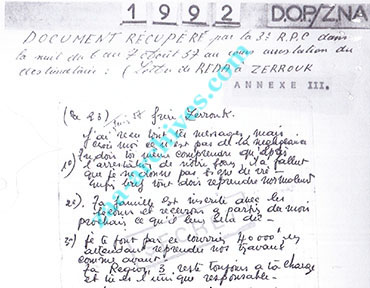 1992 D.O.P/Z.N.A
DOCUMENT RÉCUPÉRÉ par la 3è R.P.C dans
la nuit du 6 au 7 Août 57 au cours arrestation du
destinataire : ( lettre de REDA à ZERROUK
ANNEXE III.
(Le 23) frère Zerrouk.
J'ai reçu tous tes messages, mais
crois moi ce n'est pas de la négligence
1º) tu dois toi même comprendre qu'après
l'arrestation de notre frère, il a fallut
que je ne donne pas signe de vie
enfin bref tout doit reprendre normalement
2º) Ta famille est inscrite avec les
secours et recevra à partir du mois
prochain ce qu'il leur est dû
3º) je te font par ce courrier 40000 en
attendant reprendre nos travaux
comme avant.
La Région 3 reste toujours à ta charge
et tu es l'unique responsable
SECRET